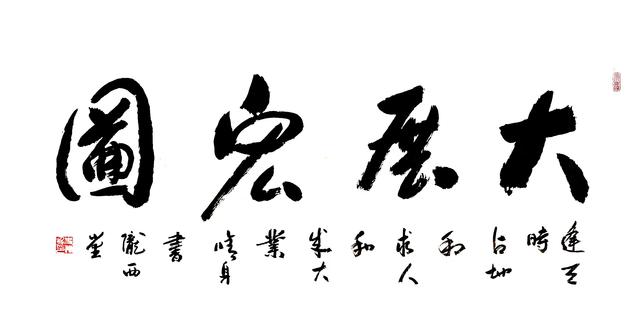 大展宏圖
逢天
時
占地
利
求人
和
成大
業
身
書
隴西
堂